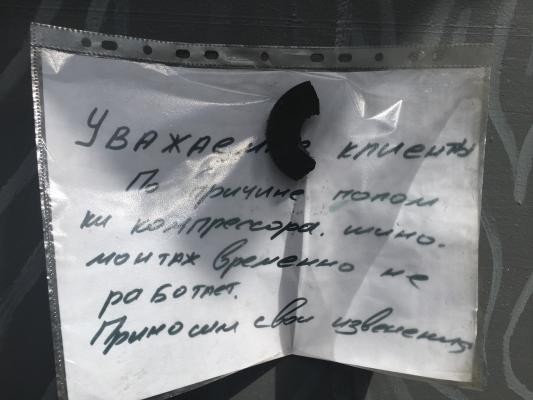 Уважаемые клиенты
По причине полом
ки компрессора, шино-
монтаж временно не
работает.
Приносим свои извенения